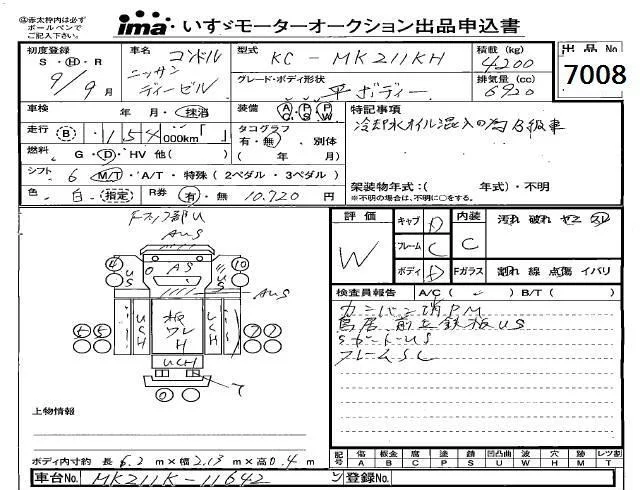 ◎赤太枠内は必ず
ボールペンで
ご記入下さい。
ima いすゞモーターオークション出品申込書
初度登録
S・H・R
9/9月
車名 コンドル
ニッサン
ディーゼル
型式 KC-MK211KH
グレード・ボディ形状
平ボディー
積載(kg)
4200
排気量(cc)
6920
出品No
7008
車検 年・月・抹消
装備 AC PS PW
特記事項
冷却水オイル混入の為B級車
走行 B・154,000km「 」
タコグラフ
有・無・別体
( 年 月)
燃料 G・D・HV 他( )
シフト 6 M/T・A/T・特殊(2ペダル・3ペダル)
色 白・指定 R券 有・無 10,720円
架装物年式:( 年式)・不明
※不明の場合は、不明に○をする。
評価 W
キャブ D
フレーム C
ボディ D
内装 C
Fガラス
汚れ 破れ ヤニ スレ
割れ 線 点傷 イバリ
検査員報告 A/C( ) B/T( )
カンバン消PM
鳥居、前立鉄板US
サガードーUS
フレームSC
AUS
④ ⑩
O
AS
US
S
AUS
USH
LCH
UCH
⑥⑤
⑦⑦
上物情報
ボディ内寸約 長 6.2 m×幅 2.13 m×高 0.4 m
記号 傷 板金 腐 塗 錆 凹凸曲 波 穴 跡 レツ割
A B C P S U W H M T
車台No. MK211K-11642
登録No.